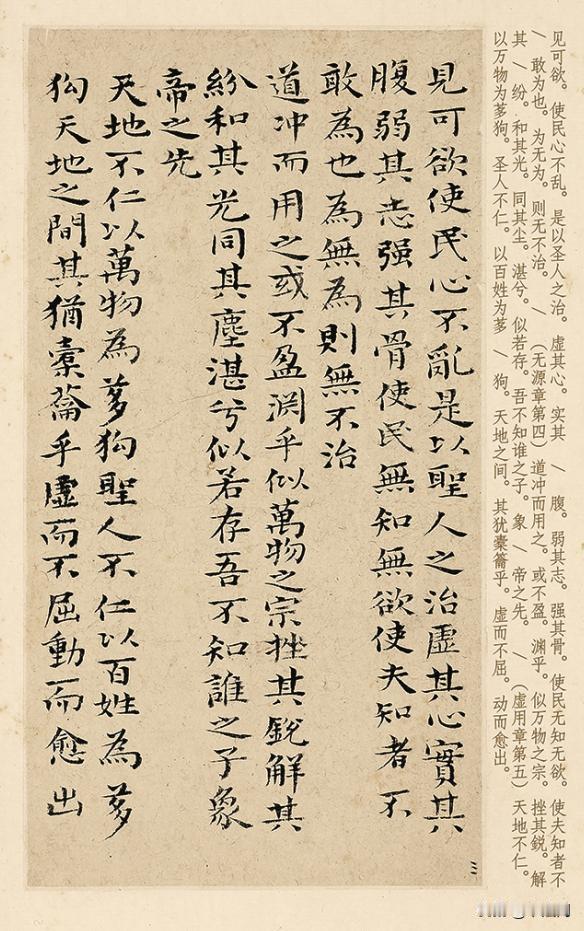 见可欲。使民心不乱。是以圣人之治。虚其心。实其 / 腹。弱其志。强其骨。使民无知无欲。使夫知者不
/ 敢为也。为无为。则无不治。 / (无源章第四)道冲而用之。或不盈。渊乎。似万物之宗。挫其鋭。解
其 / 纷。和其光。同其尘。湛兮。似若存。吾不知谁之子。象 / 帝之先。 / (虚用章第五) 天地不仁。
以万物为茤狗。圣人不仁。以百姓为茤 / 狗。天地之间。其犹橐籥乎。虚而不屈。动而愈出。
見可欲使民心不亂是以聖人之治虛其心實其
腹弱其志强其骨使民無知無欲使夫知者不
敢為也為無為則無不治
道冲而用之或不盈渊乎似萬物之宗挫其銳解其
紛和其光同其塵湛兮似若存吾不知誰之子象
帝之先
天地不仁以萬物為茤狗聖人不仁以百姓為茤
狗天地之間其猶橐籥乎虛而不屈動而愈出